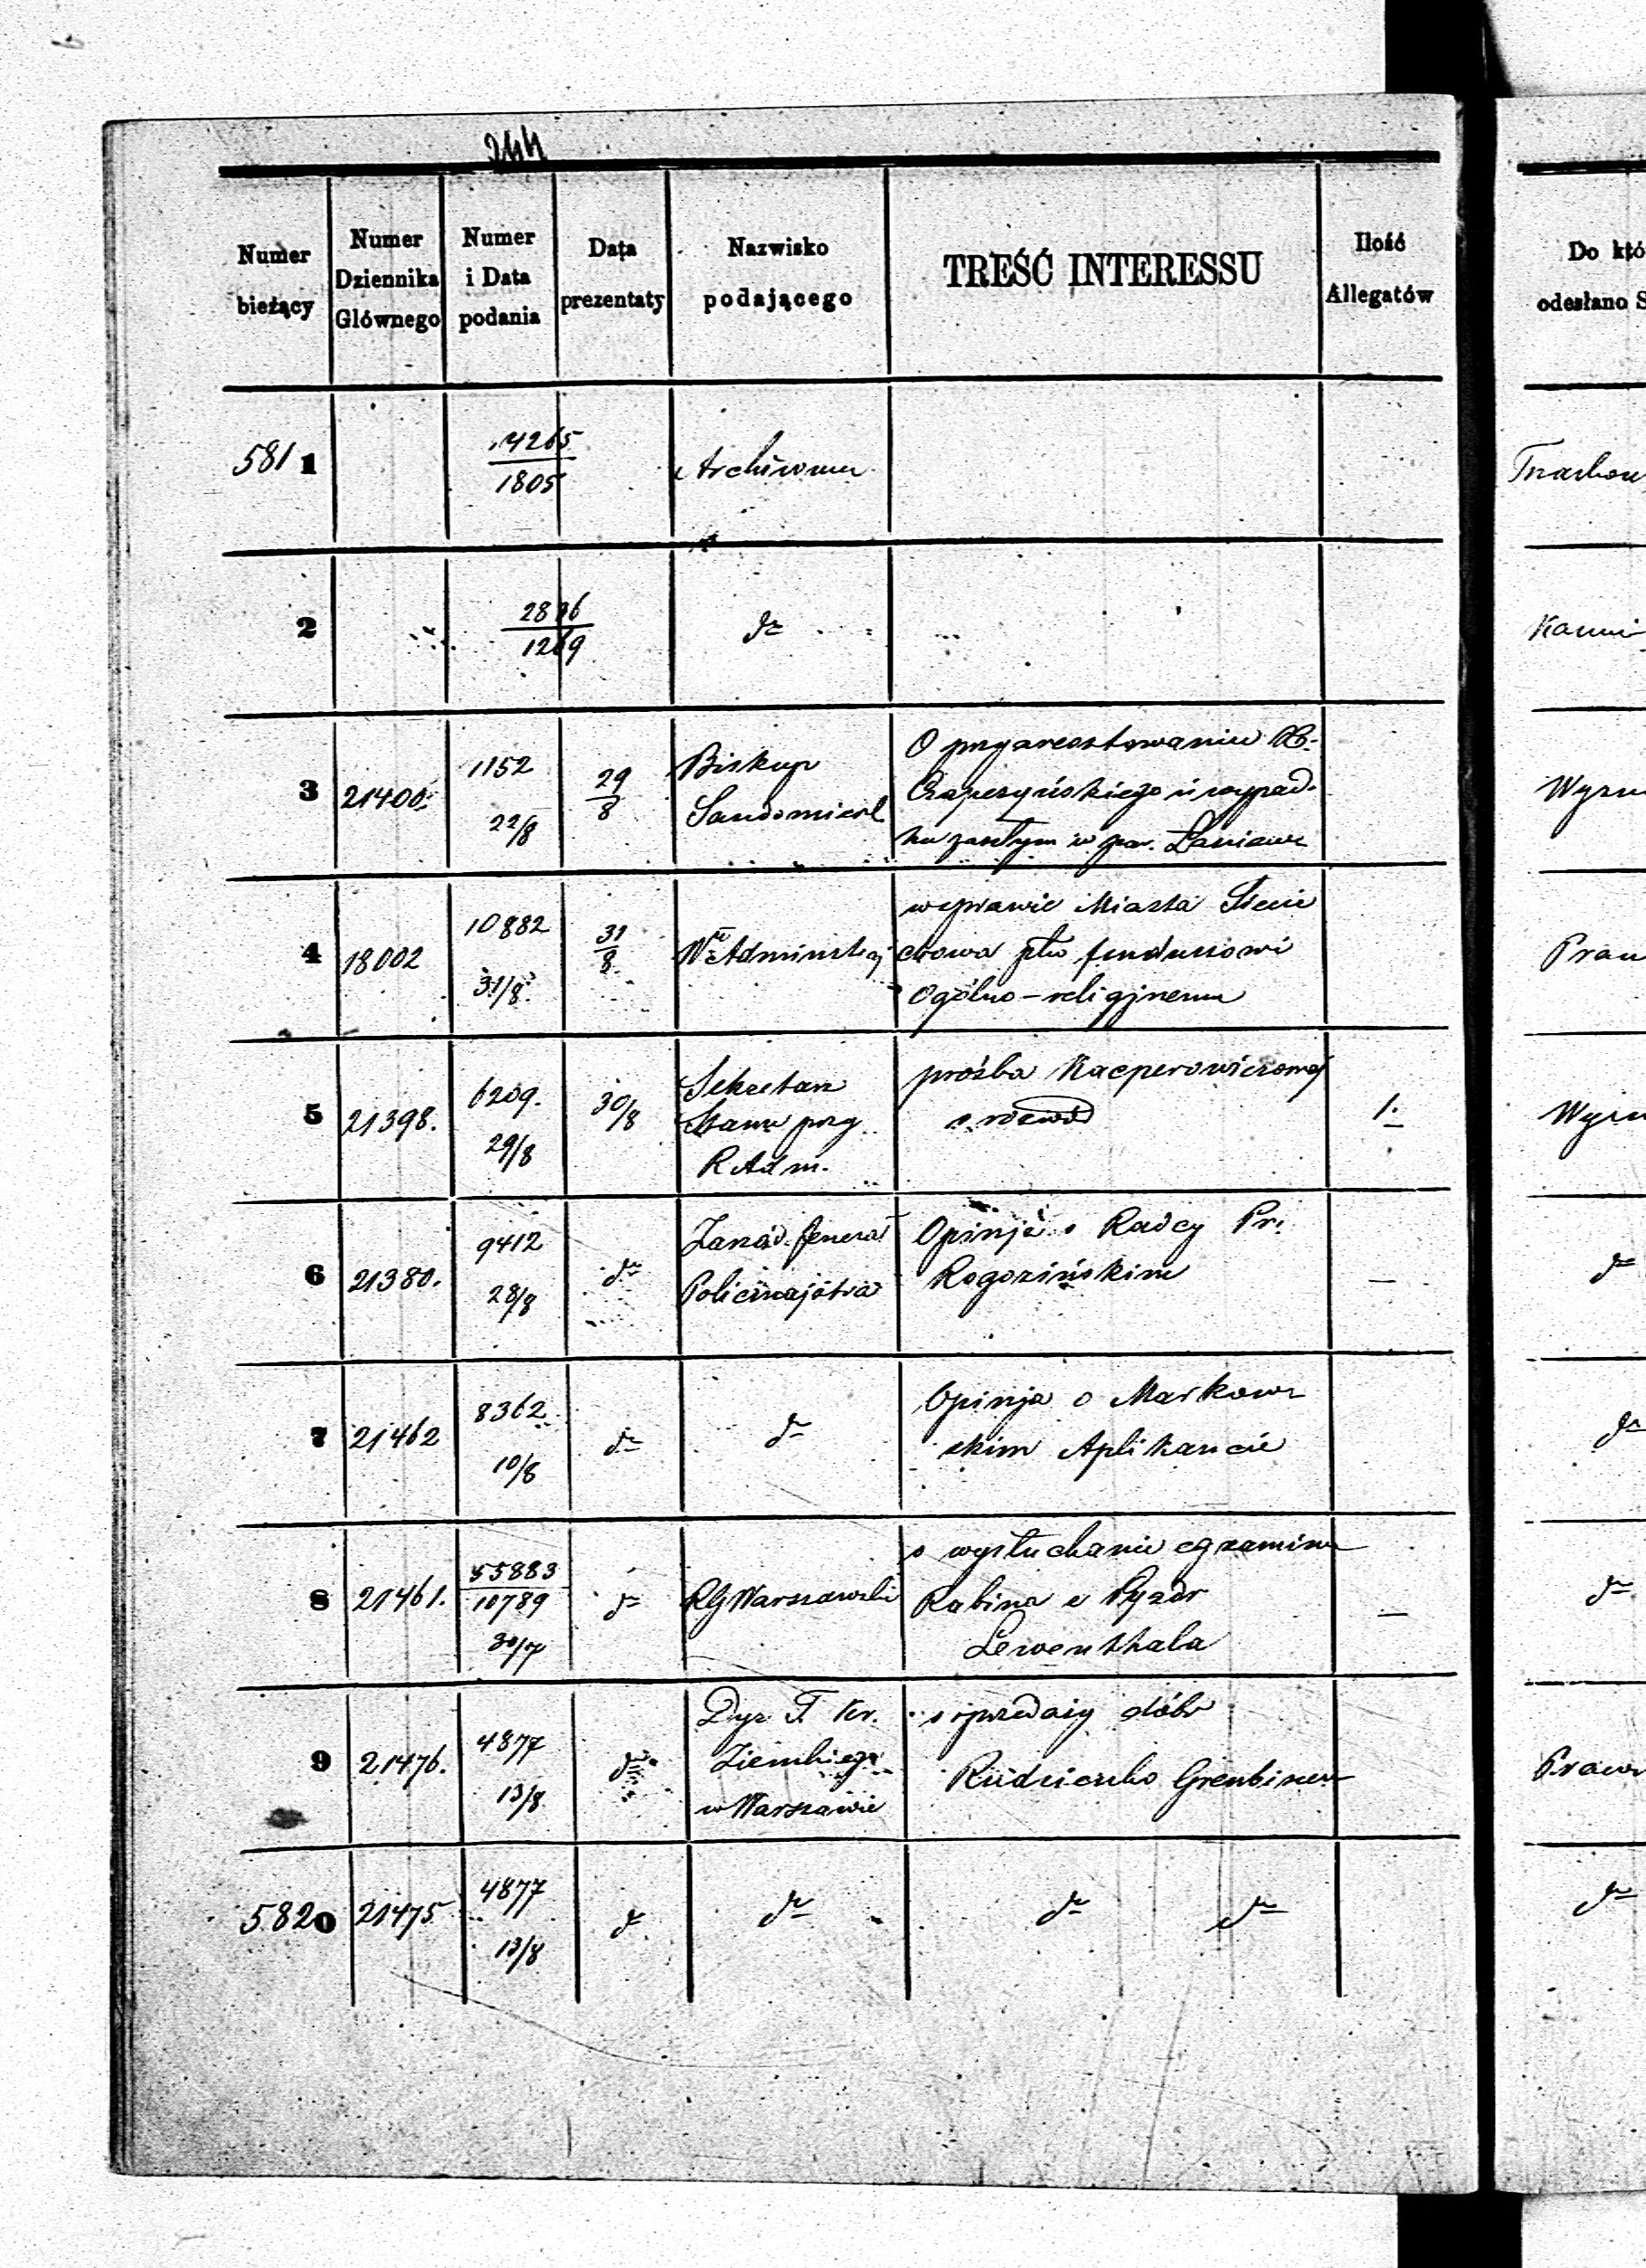 244
Numer
bieżący
Numer
Dziennika
Głównego
Numer
i Data
podania
Data
prezentaty
Nazwisko
podającego
TREŚĆ INTERESSU
Ilość
Allegatów
Do któ
odesłano S
581 1
4265
1805
Archiwum
2
28 6
1269
dto
3
21400.
1152
22/8
29/8
Biskup
Sandomiersk
O przyaresztowaniu X.
Czapczyńskiego i wypad-
ku zaszłym w par.
Wyzn
4
18002
10882
31/8
31/8
Wł Administracyj
w sprawie Miasta Siecie
chowa ptko funduszowi
Ogólno-religijnemu
Praw
5
21398.
6209.
29/8
30/8
Sekretarz
Stanu przy
R Adm.
prośba Kacperowiczowej
o rozwód
1.
Wyzn
6
21380.
9412
28/8
dto
Zarząd Generał
Policmajstra
Opinja o Radcy Pr.
Rogozińskim
—
dto
7
21462
8362
10/8
dto
dto
Opinja o Markow
skim Aplikancie
dto
8
21461.
55883
10789
30/7
dto
RG Warszawski
o wysłuchanie egzaminu
Rabina z Pyzdr
Lewenthala
—
dto
9
21476.
4877
13/8
dto
Dyr. T. Kr.
Ziemskiego
w Warszawie
o sprzedaży dóbr
Rudziczko
Praw
5820
21475
4877
13/8
dto
dto
dto dto
dto